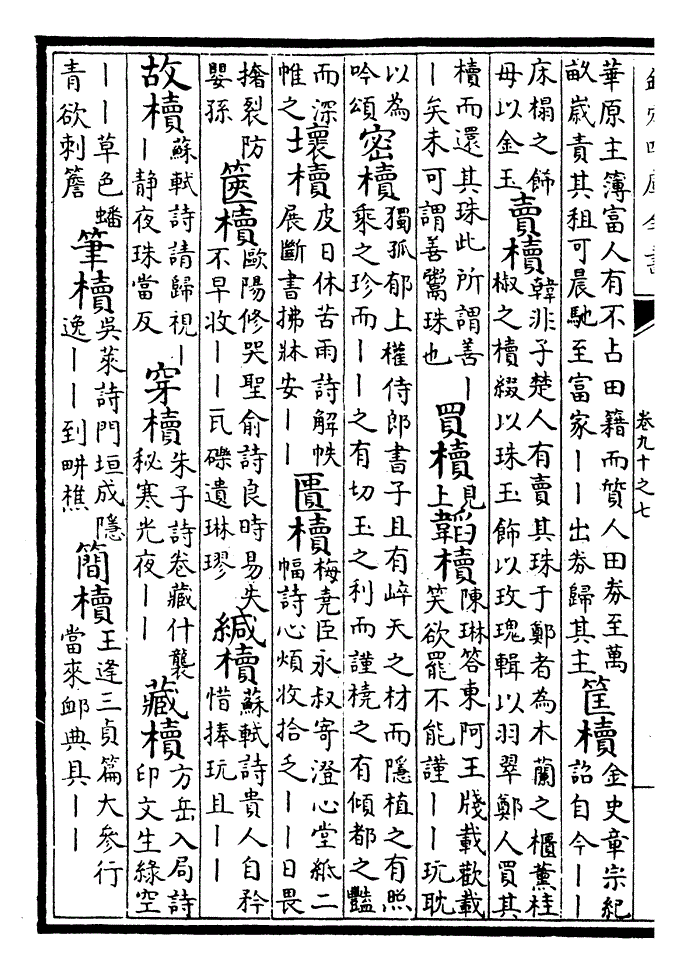 欽定四庫全書
卷九十之七
華原主簿富人有不占田籍而質人田券至萬
畝歲責其租可晨馳至富家——出券歸其主
筐櫝
金史章宗紀
詔自今——
床榻之飾
母以金玉
賣櫝
韓非子楚人有賣其珠于鄭者為木蘭之櫃薰桂
椒之櫝綴以珠玉飾以玫瑰輯以羽翠鄭人買其
櫝而還其珠此所謂善—
—矣未可謂善鬻珠也
買櫝
見
上
韜櫝
陳琳答東阿王牋載歡載
笑欲罷不能謹——玩耽
以為
吟頌
密櫝
獨孤郁上權侍郎書子且有崪天之材而隱植之有照
乘之珍而——之有切玉之利而謹橈之有傾都之豔
而深
帷之
壞櫝
皮日休苦雨詩解帙
展斷書拂牀安——
匱櫝
梅堯臣永叔寄澄心堂紙二
幅詩心煩收拾乏——日畏
撦裂防
嬰孫
篋櫝
歐陽修哭聖俞詩良時易失
不早收——瓦礫遺琳璆
緘櫝
蘇軾詩貴人自矜
惜捧玩且——
故櫝
蘇軾詩請歸視—
—静夜珠當反
穿櫝
朱子詩卷藏什襲
秘寒光夜——
藏櫝
方岳入局詩
印文生綠空
——草色蟠
青欲刺簷
筆櫝
吳萊詩門垣成隱
逸——到畊樵
簡櫝
王逢三貞篇大參行
當來卹典具——